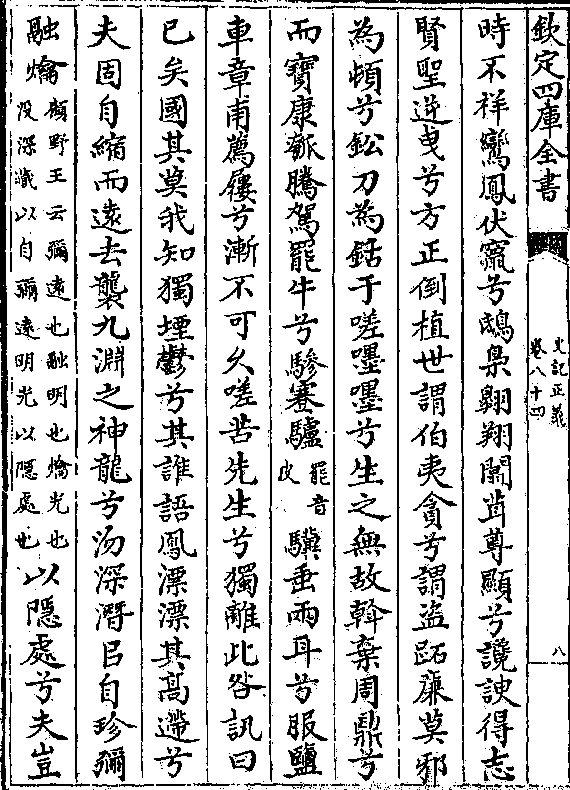 欽定四庫全書
史記正義
卷八十四
八
時不祥鸞鳳伏竄兮鴟梟翺翔闒茸尊顯兮讒諛得志
賢聖逆曵兮方正倒植世謂伯夷貪兮謂盜跖廉莫邪
為頓兮鈆刀為銛于嗟嚜嚜兮生之無故斡棄周鼎兮
而寶康瓠騰駕罷牛兮驂蹇驢罷音皮驥垂兩耳兮服鹽
車章甫薦屨兮漸不可久嗟苦先生兮獨離此咎訊曰
已矣國其莫我知獨堙鬱兮其誰語鳳漂漂其高遰兮
夫固自縮而遠去襲九淵之神龍兮沕深潛㠯自珍彌
融爚顧野王云彌遠也融明也爚光也没深藏以自彌遠明光以隱處也以隱處兮夫豈